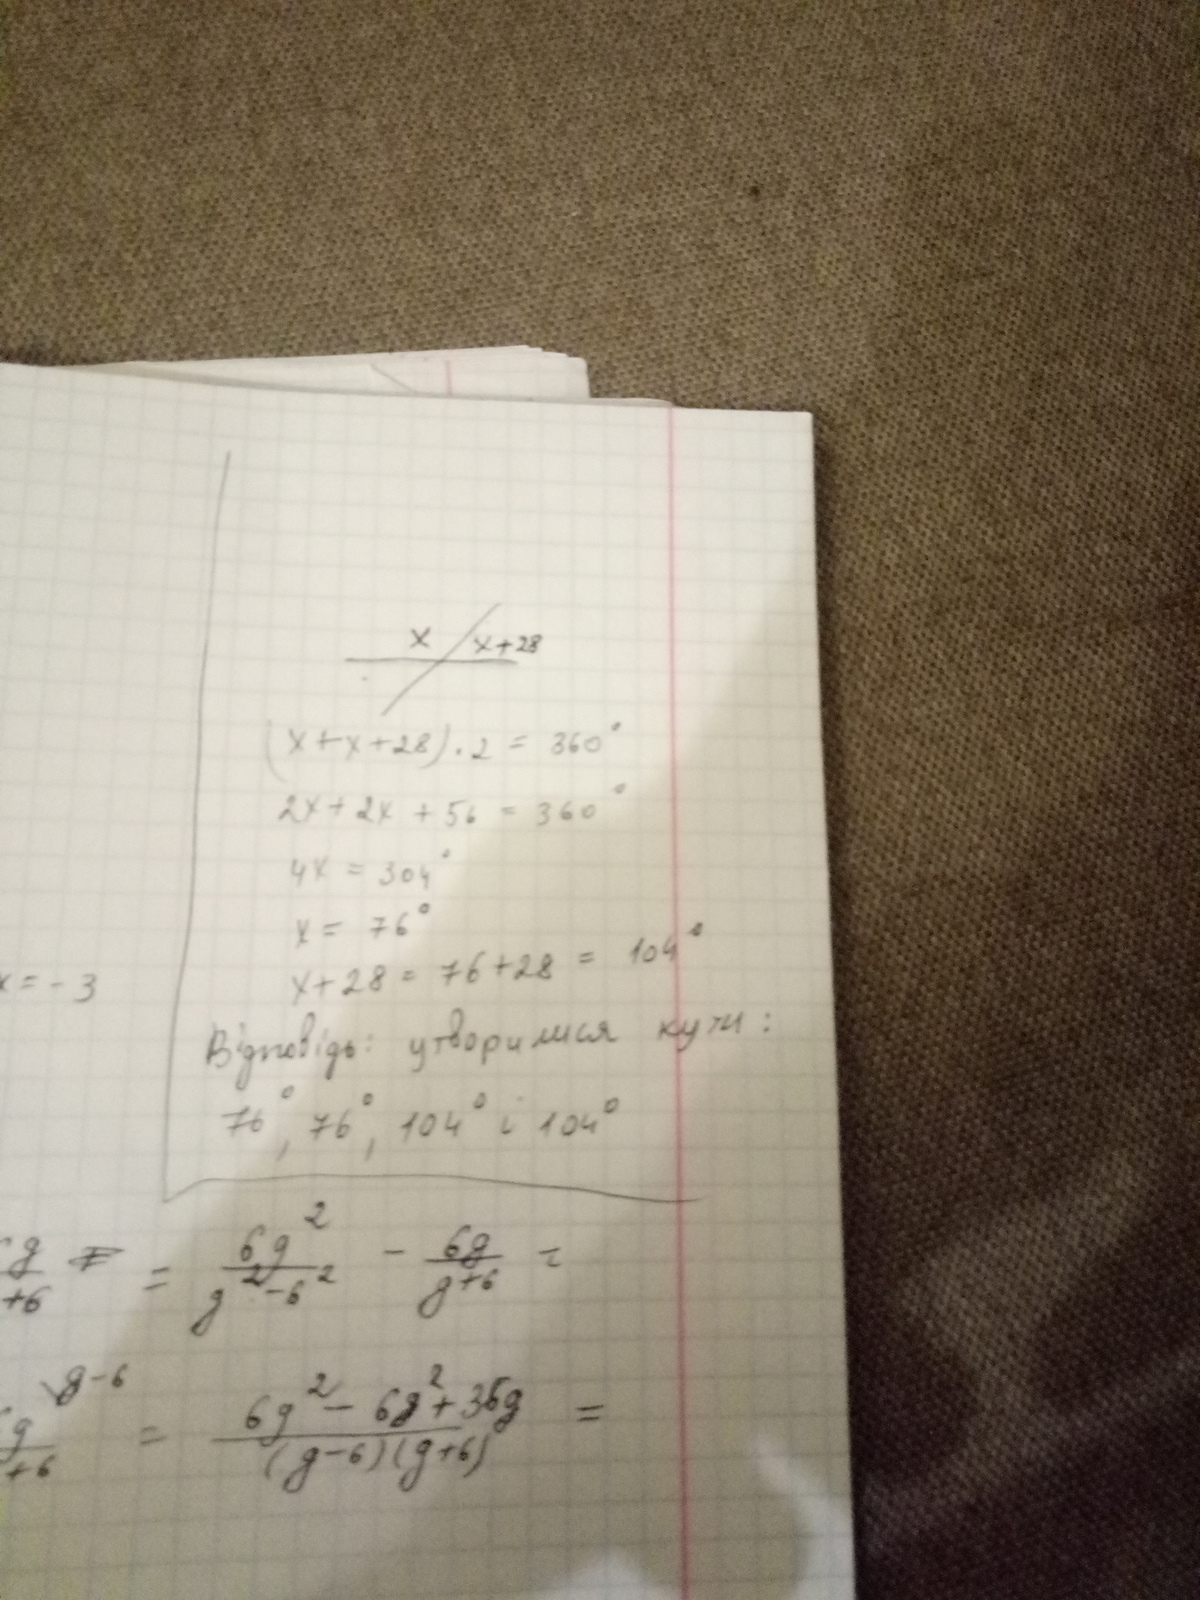 x x+28
(x+x+28)·2 = 360°
2x+2x+56 = 360°
4x = 304°
x = 76°
x+28 = 76+28 = 104°
x = -3
Відповідь: утворилися кути:
76°, 76°, 104° і 104°
6g/g+6 = 6g²/g²-6² - 6g/g+6 =
6g/g+6 \g-6 = 6g²- 6g²+36g/(g-6)(g+6) =